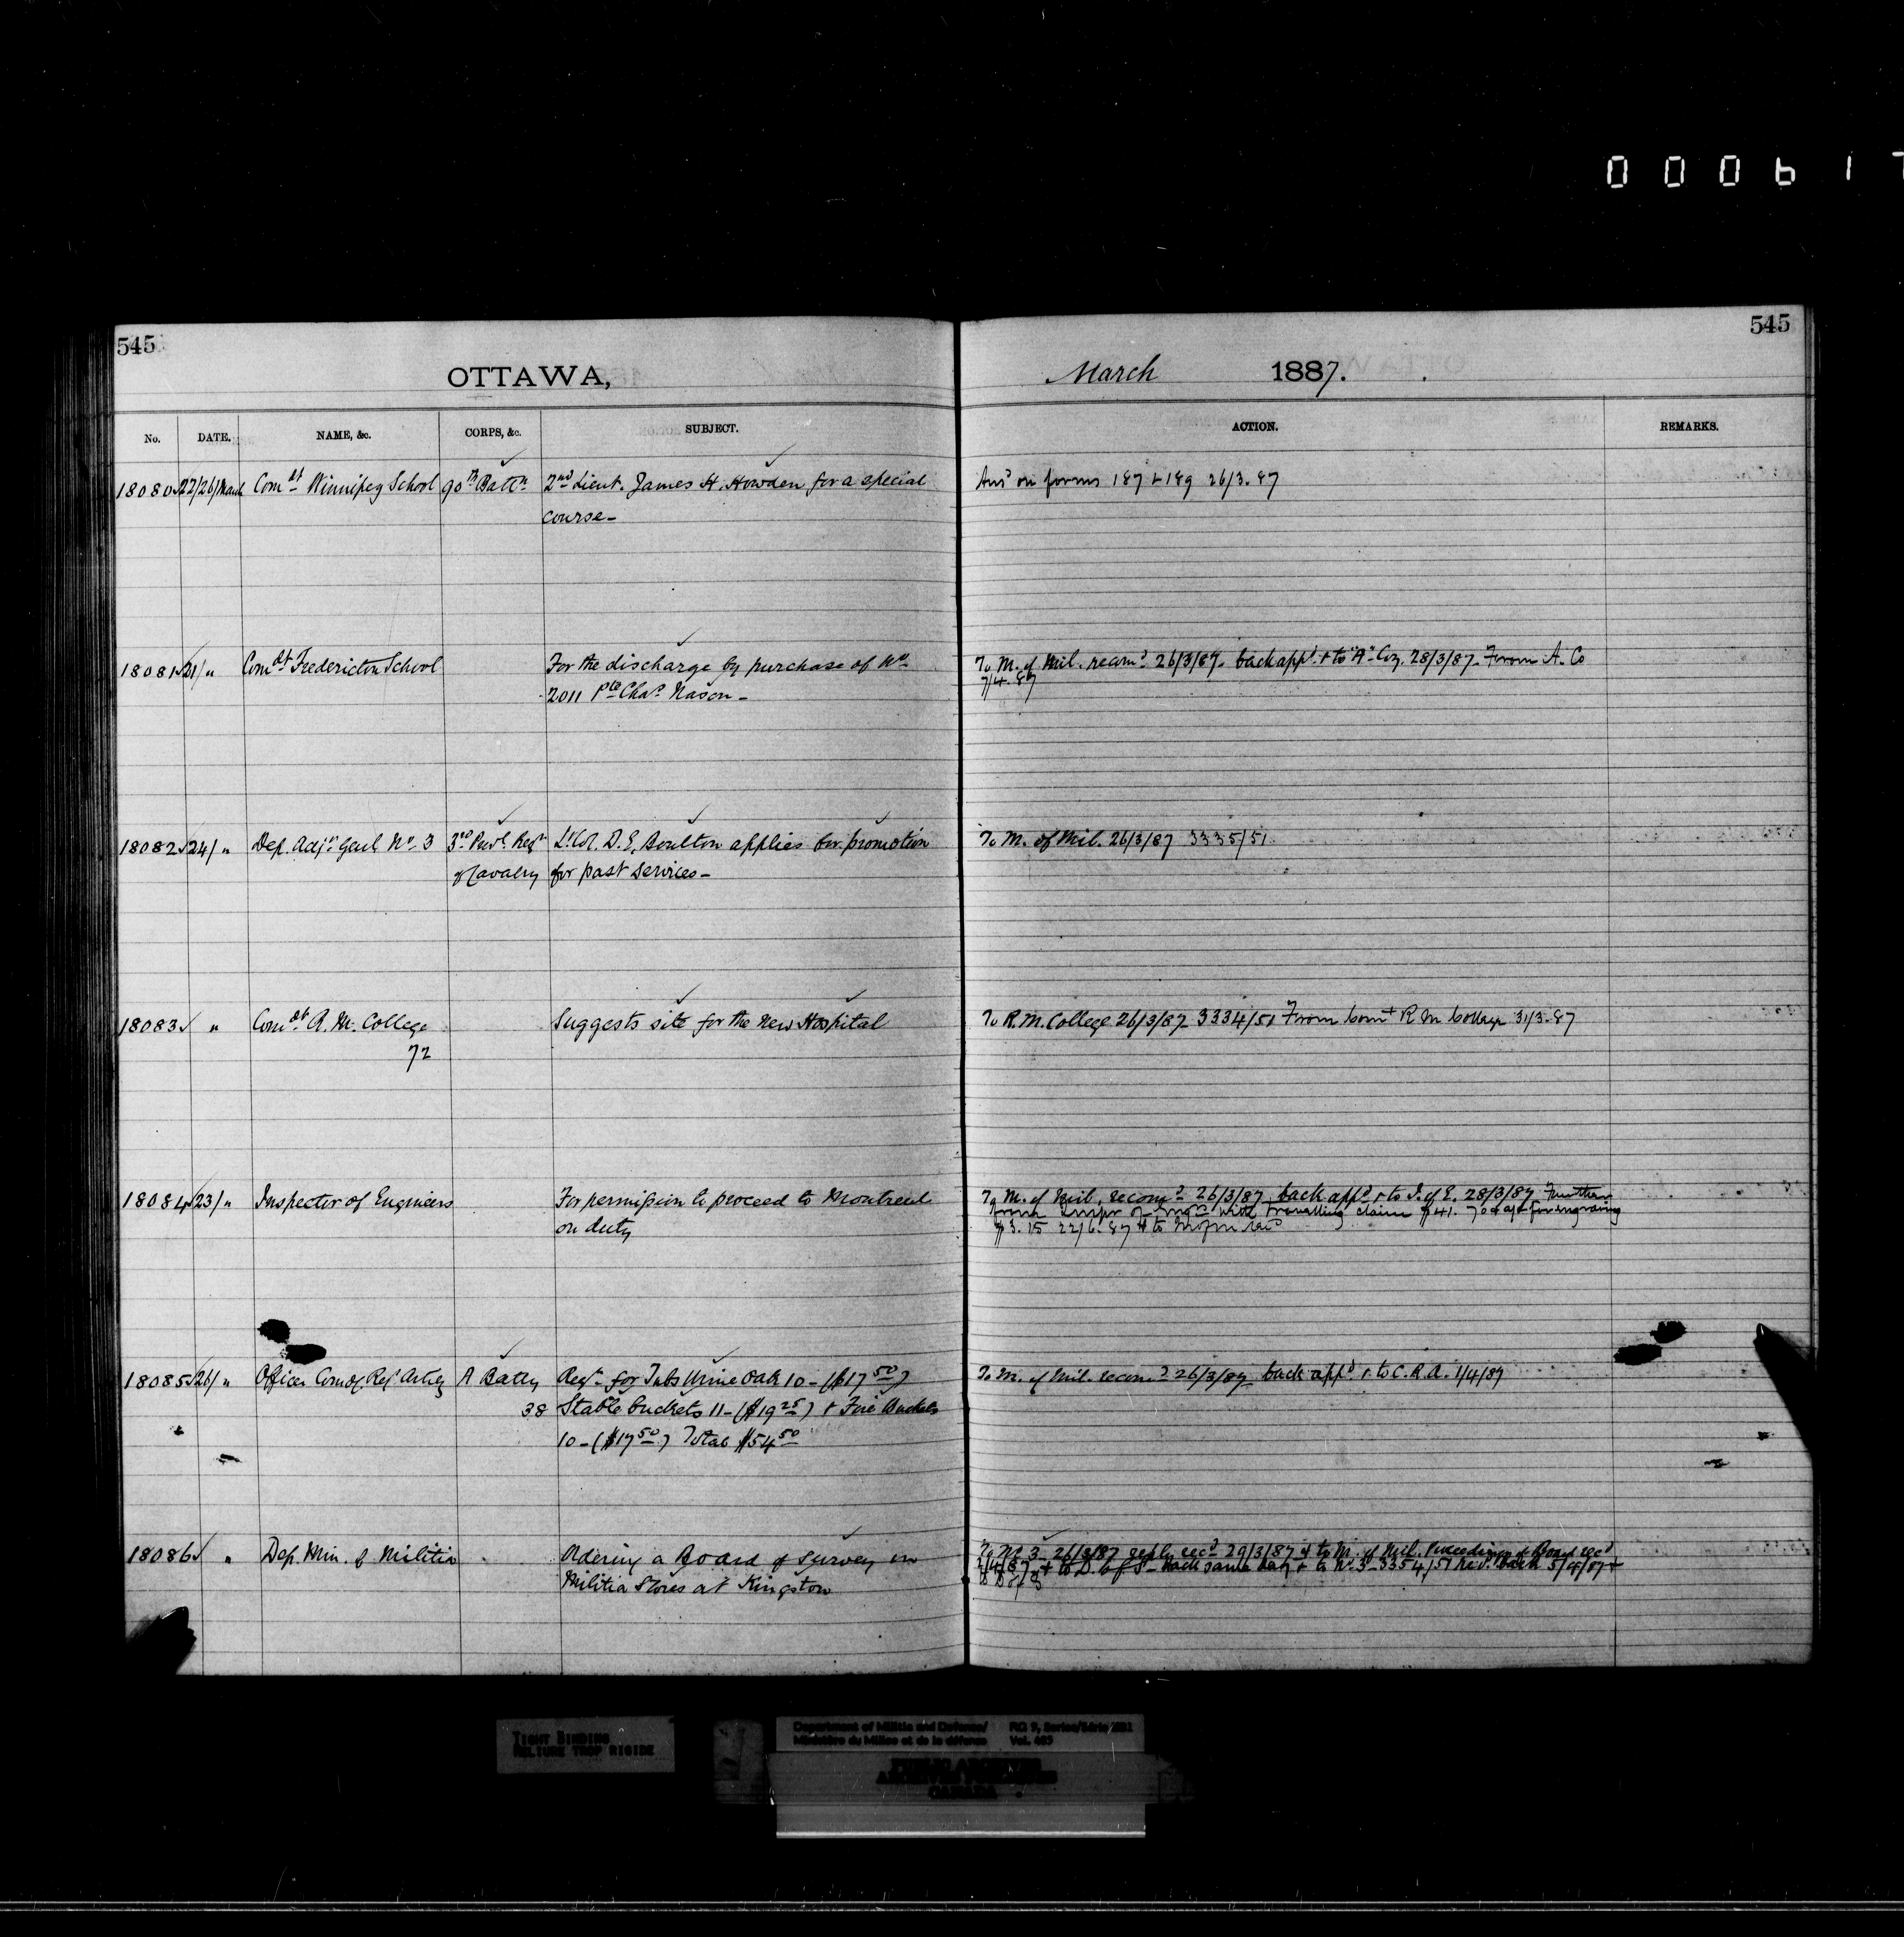 000617
545
545
OTTAWA,
March 1887.
No. DATE. NAME, &c. CORPS, &c. SUBJECT. ACTION. REMARKS.
18080 22/26/March Comdt Winnipeg School 90th Battn 2nd Lieut. James H. Howden for a special Ansd on forms 187 & 189 26/3.87
course—
18081 21/ " Comdt Fredericton School For the discharge by purchase of No To M. of Mil. recomd 26/3/87. back appd & to "A" Coy. 28/3/87. From A. Co
2011 Pte Chas Nason— 7/4.87
18082 24/ " Dep. Adjt Genl No 3 3rd Provl Regt Lt Col. D. E. Boulton applies for promotion To M. of Mil. 26/3/87 3335/51
of Cavalry for past services—
18083 " Comdt R. M. College Suggests site for the new Hospital To R. M. College 26/3/87 3334/51 From Comt R M College 31/3.87
72
18084 23/ " Inspector of Engineers For permission to proceed to Montreal To M. of Mil. recomd 26/3/87 back appd & to I. of E. 28/3/87 Further
on duty from Inspr of Engrs with travelling claim $41. for engraving
$3.15 22/6.87 & to
18085 26/ " Officer Comdg Regt Arty A Batty Reqn for Tubs Urine Oak 10—($17 50) To M. of Mil. recomd 26/3/87 back appd & to C. R. A. 1/4/87
38 Stable buckets 11—($19 25) & Fire Buckets
10—($17 50) Total $54 50
18086 " Dep. Min. of Militia Ordering a Board of Survey on To No 3 26/3/87 reply recd 29/3/87 & to M. of Mil. Proceedings of Board recd
Militia Stores at Kingston 2/4/87 & to D. of S— back same day & to No 3—3354/51 Recd back 5/4/87 &
to D of S
TIGHT BINDING
RELIURE TROP RIGIDE
Department of Militia and Defence/ RG 9, Series/Série IIB1
Ministère du Milice et de la défense Vol. 463
PUBLIC ARCHIVES
ARCHIVES PUBLIQUES
CANADA